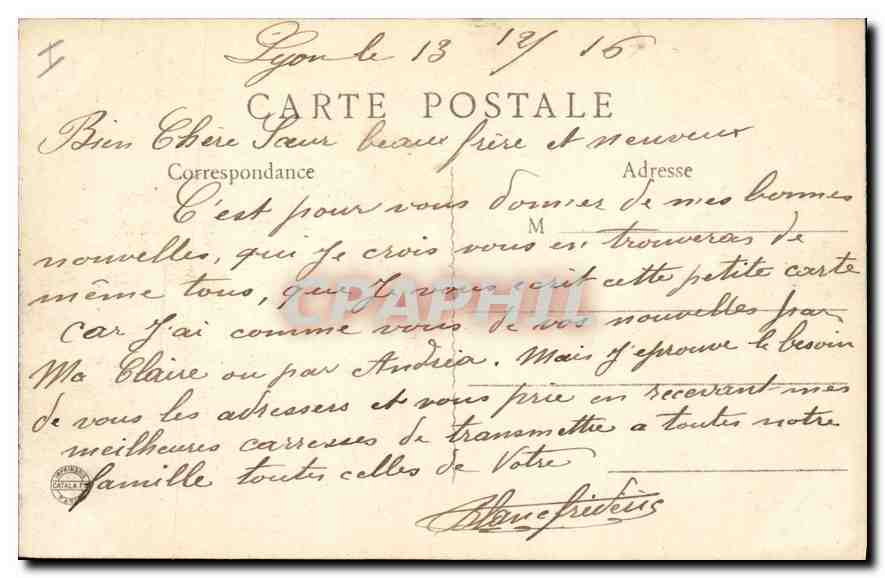 I
Lyon le 13 12/ 16
CARTE POSTALE
Bien Chère Sœur beaux frère et neuveux
Correspondance
Adresse
C'est pour vous donner de mes bonnes
M
nouvelles, qui Je crois vous en trouveras de
même tous, que Je vous ecrit cette petite carte
CPAPHIL
car J'ai comme vous de vos nouvelles par
Ma Claire ou par Andréa. Mais J'eprouve le besoin
de vous les adressers et vous prie en recevant mes
meilheures carresses de transmettre a toutes notre
famille toutes celles de Votre
IMPRIMERIE
CATALA Fres
PARIS
Blanc frédéric